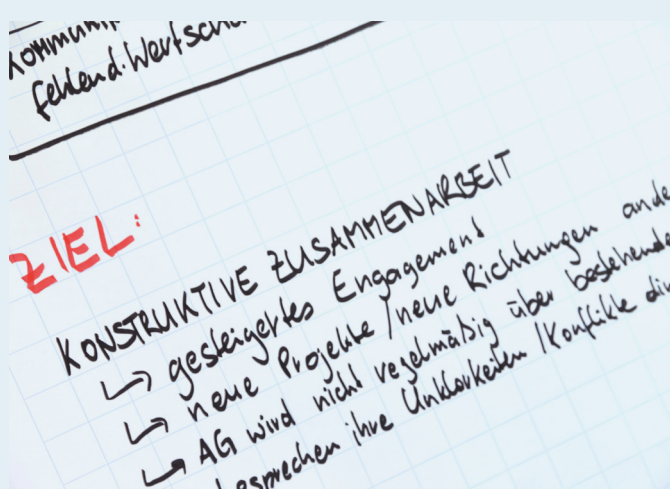 Kommuni
fehlend. Wertschä
ZIEL:
KONSTRUKTIVE ZUSAMMENARBEIT
↳ gesteigertes Engagement
↳ neue Projekte / neue Richtungen ande
↳ AG wird nicht regelmäßig über bestehende
besprechen ihre Unklarkeiten / Konflikte di